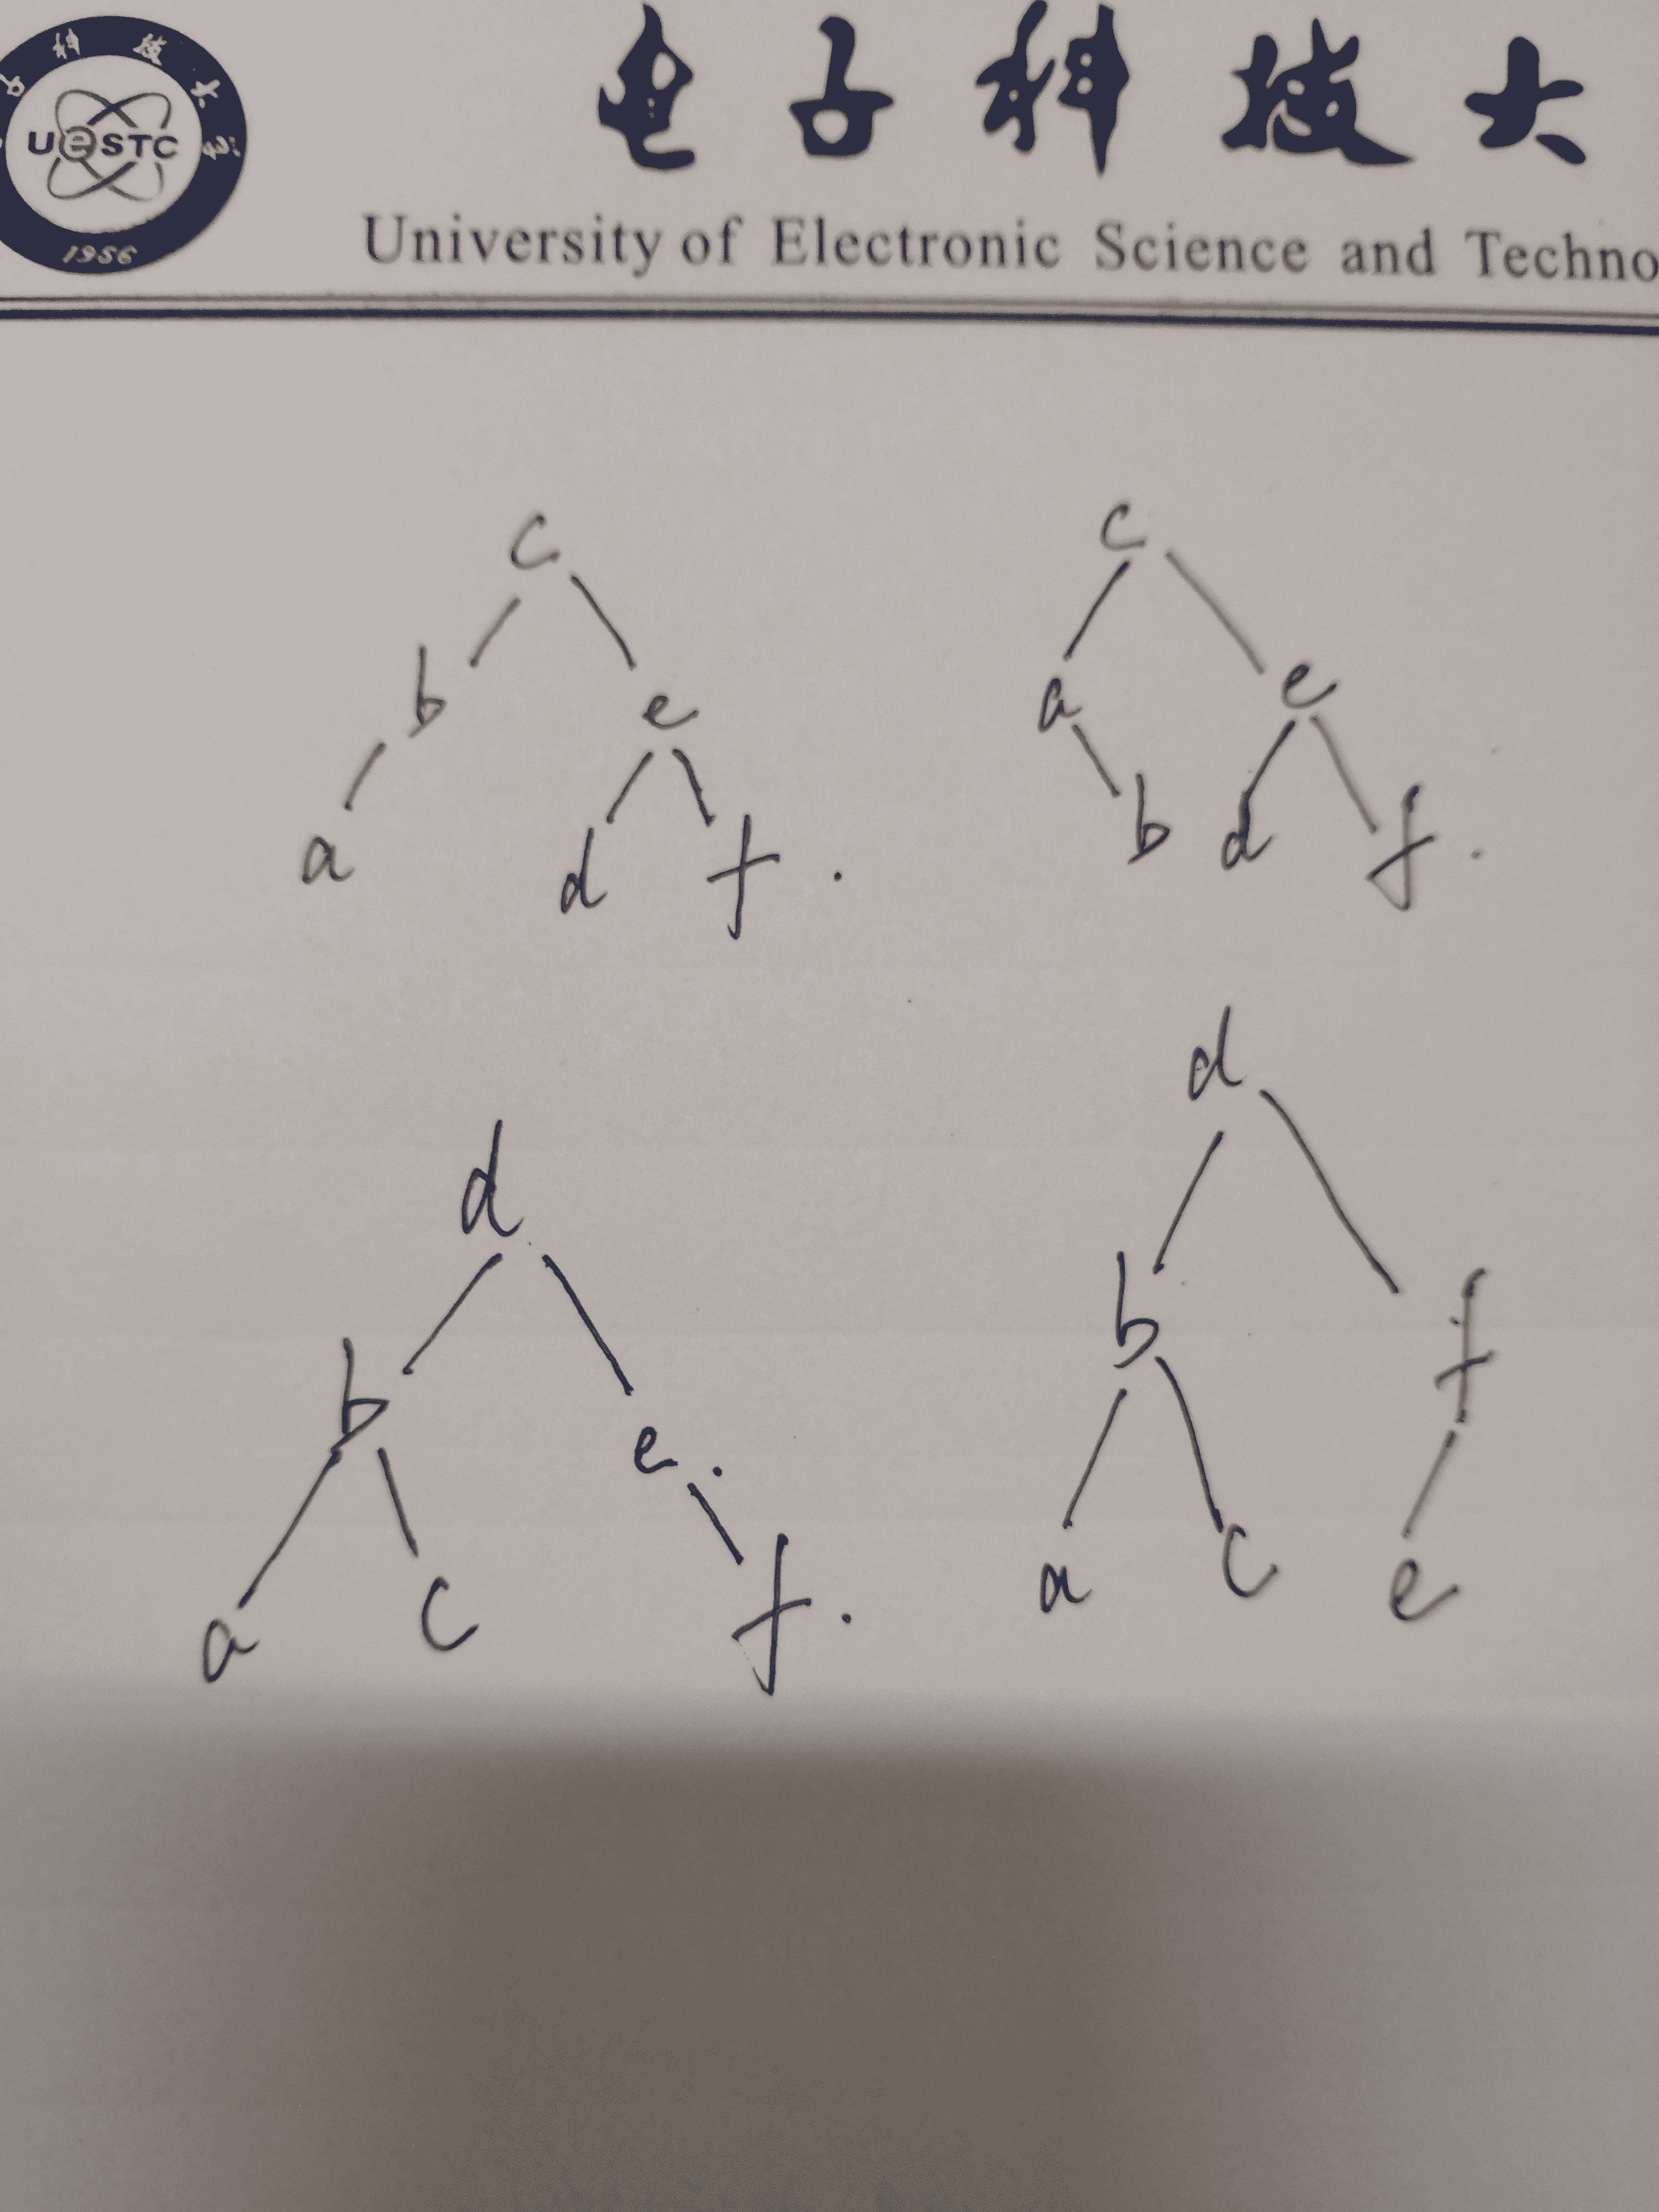 科 技 大
UeSTC
1956
电子科技大
University of Electronic Science and Techno
c c
b e a e
a d f . b d f .
d d
b e . b f
a c f . a c e